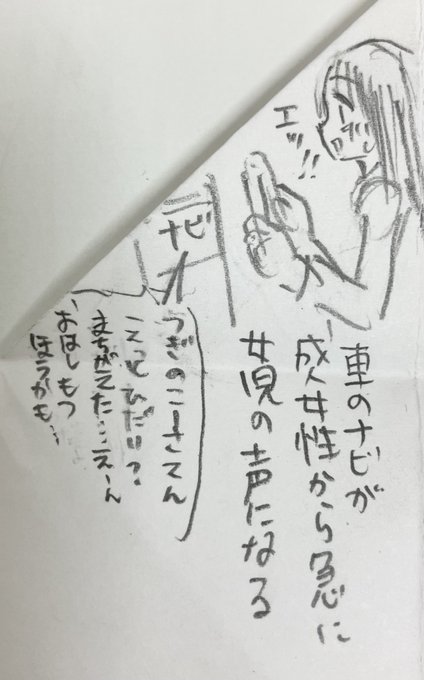 エッ!!
車のナビが
成人女性から急に
女児の声になる
ナビ
つぎのこーさてん
えっとひだり?
まちがえた…えーん
おはしもつ
ほうかも…